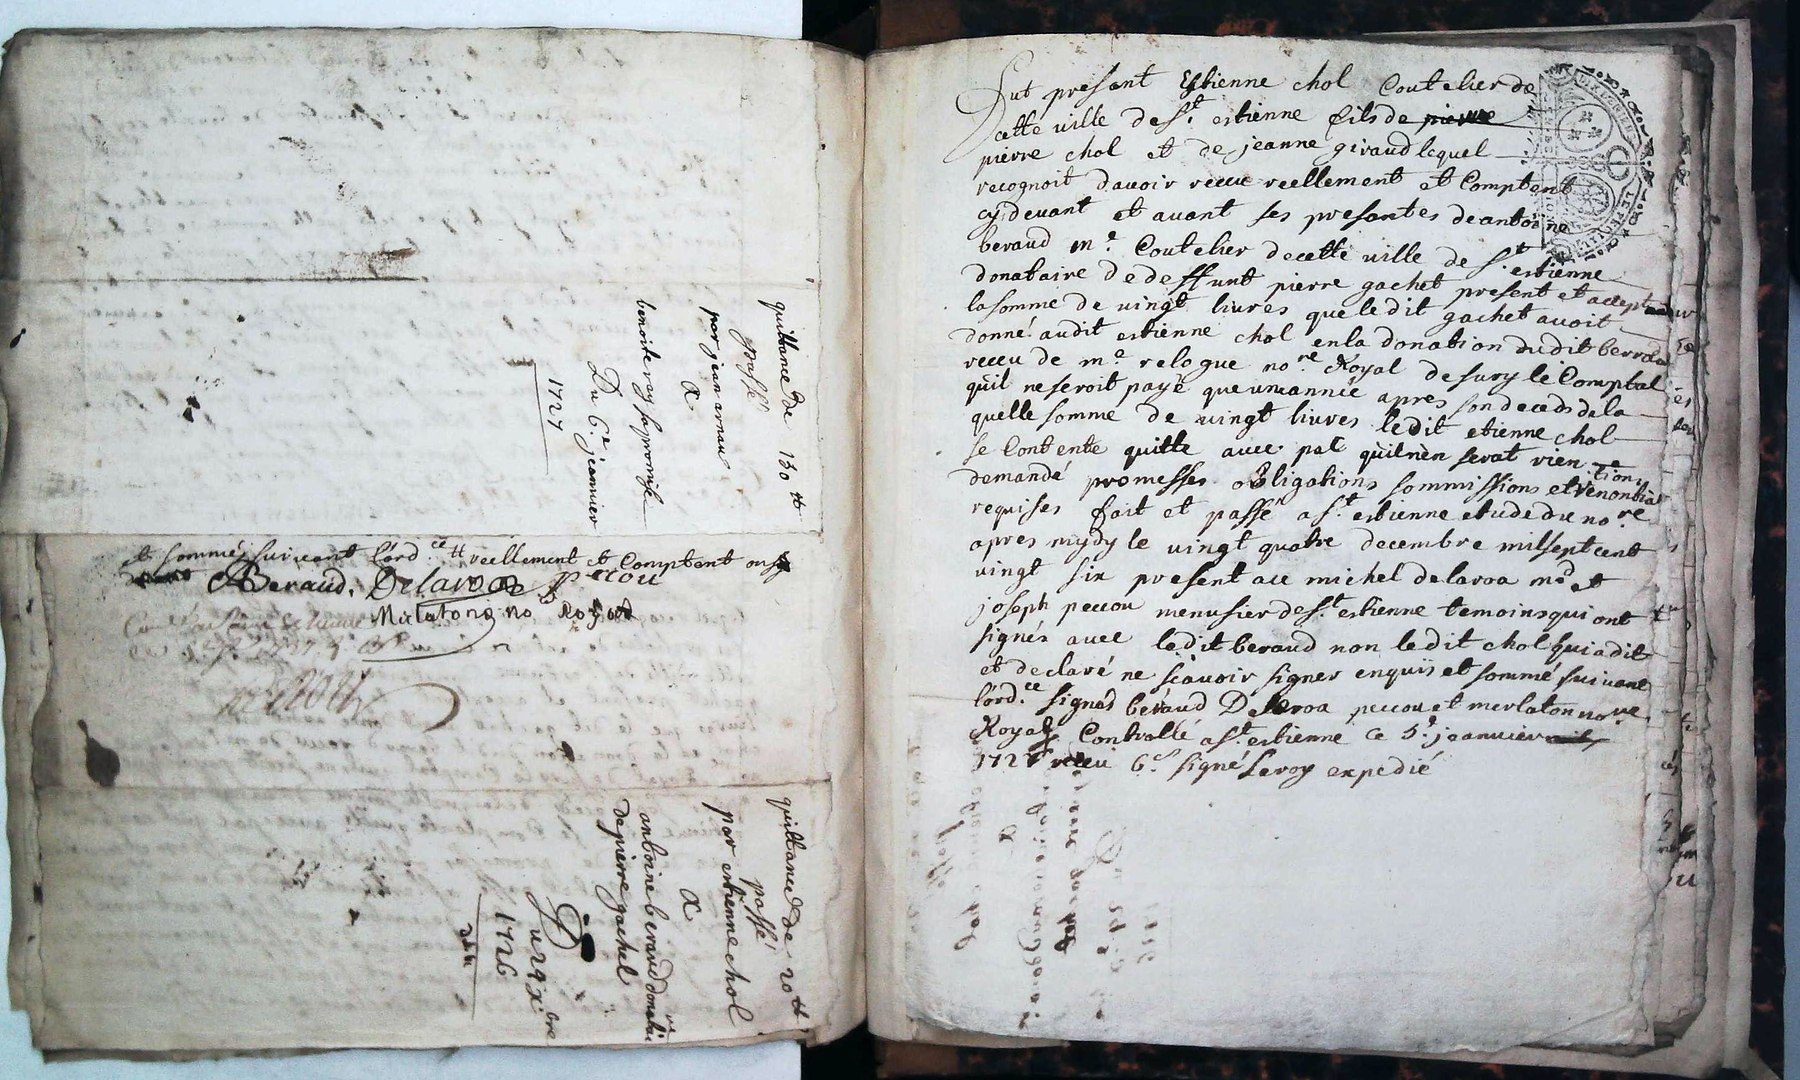 quittance de 130 tt
passé
par jean arnau
a
benoite ray sa promise
Du 6e jeanvier
1727
et sommé suivant l'ord.ce tt reellement et Comptent
Beraud. Delaroa peccou
Merlaton no.re Royal
quittance de 20 tt
passé
par estienne chol
a
antoine beraud donatairre
de pierre gachet
Du 29 xbre
1726
Fut presant Estienne chol Coutelier de
cette ville de St. estienne fils de pierre
pierre chol et de jeanne giraud lequel
recognoit davoir receu reellement et Comptent
cy devant et avant ses presantes de antoine
beraud me. Coutelier decette ville de St. estienne
donataire de deffunt pierre gachet present et accept
la somme de vingt livres que le dit gachet avoit
donné audit estienne chol en la donation dudit beraud
receu de me relogue no.re Royal de sury le Comptal
quil ne seroit payé que une année apres son deceds de la
quelle somme de vingt livres ledit etienne chol
se Contente quitte avec pat quil nen serat rien
demandé promesses obligations sommissions et renontiations
requises fait et passé a St. estienne etude du no.re
apres mydy le vingt quatre decembre mil sept cent
vingt six present ace michel delaroa md et
joseph peccou menusier de St. estienne temoins qui ont
signés avec ledit beraud non le dit chol qui a dit
et declaré ne scavoir signer enquis et sommé suivant
l'ord.ce signés beraud Delaroa peccou et merlaton no.re
Royal Controllé a St. estienne ce 5e jeanvier
1727 receu 6s signé Leroy expedié